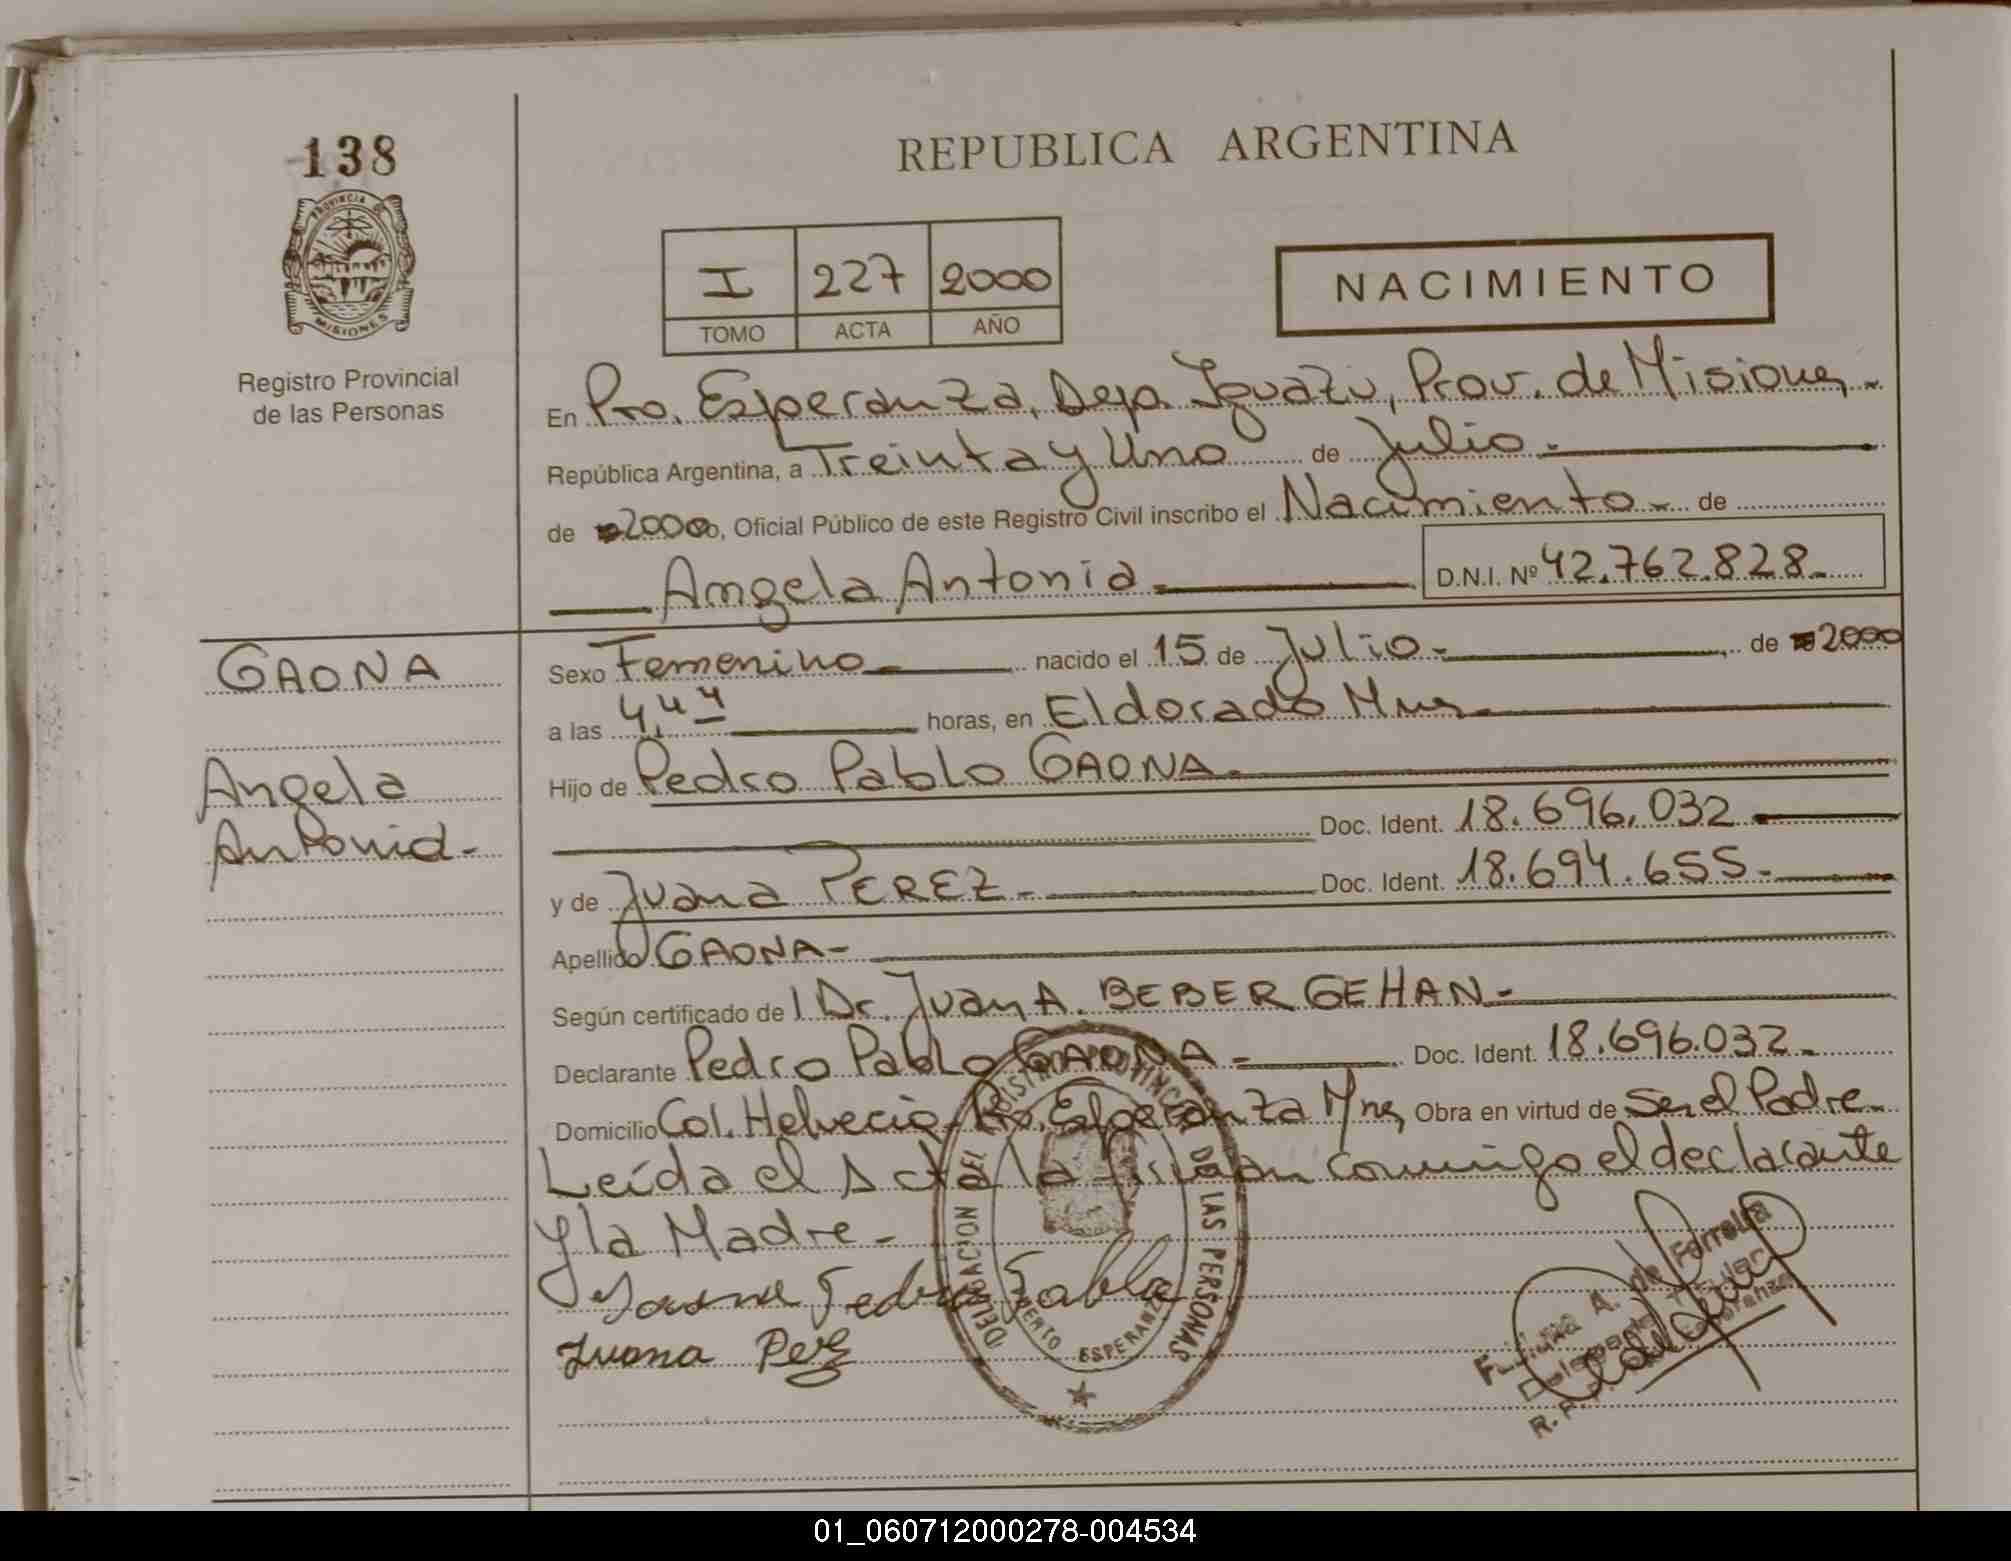 138
REPUBLICA ARGENTINA
PROVINCIA DE
MISIONES
Registro Provincial
de las Personas
I 227 2000
TOMO ACTA AÑO
NACIMIENTO
En Pto. Esperanza, Dep. Iguazú, Prov. de Misiones
República Argentina, a Treinta y Uno de Julio.
de 2000, Oficial Público de este Registro Civil inscribo el Nacimiento de
Angela Antonia D.N.I. Nº 42.762.828
GAONA
Angela
Antonia-
Sexo Femenino nacido el 15 de Julio de 2000
a las 4,44 horas, en Eldorado Mnes
Hijo de Pedro Pablo GAONA.
Doc. Ident. 18.696.032
y de Juana PEREZ- Doc. Ident. 18.694.655-
Apellido GAONA-
Según certificado de l Dr. Juan A. BEBER GEHAN-
Declarante Pedro Pablo GAONA- Doc. Ident. 18.696.032.
Domicilio Col. Helvecia- Pto. Esperanza Mnes Obra en virtud de Ser el Padre
Leída el Acta la firman conmigo el declarante
y la Madre-
Pedro Pablo
Juana Perez
DELEGACION DEL REGISTRO PROVINCIAL DE LAS PERSONAS
PUERTO ESPERANZA
A. de Ferreira
01_060712000278-004534